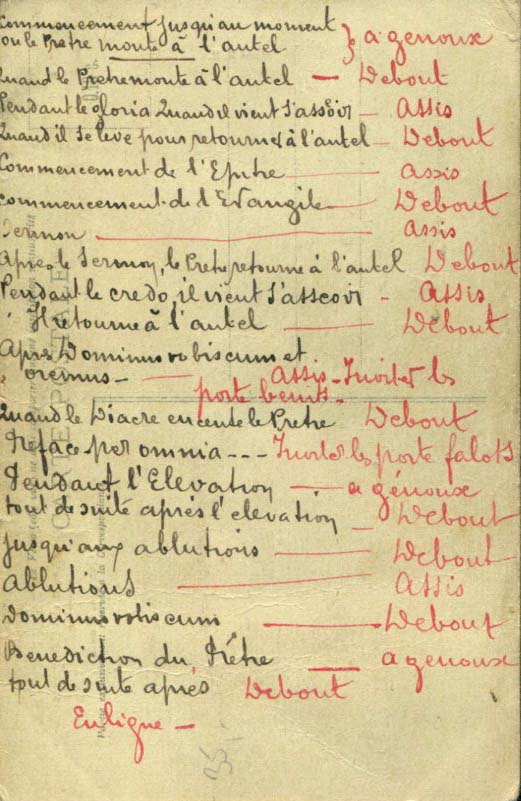 Commencement jusqu'au moment
ou le Prêtre monte à l'autel } a genoux
Quand le Pretre monte à l'autel — Debout
Pendant le gloria Quand il vient s'assoir — Assis
Quand il se leve pour retourner à l'autel — Debout
Commencement de l'Epitre — assis
commencement de l'Evangile — Debout
Sermon — assis
Apres le Sermon, le Prêtre retourne à l'autel Debout
Pendant le credo, il vient s'asseoir - Assis
Il retourne à l'autel — Debout
Après Dominus vobiscum et
oremus — assis - Inviter les
porte benits -
Quand le Diacre encente le Pretre Debout
Preface per omnia --- Inviter les porte falots
Pendant l'Elevation — a génoux
tout de suite après l'elevation — Debout
jusqu'aux ablutions — Debout
ablutions — Assis
Dominus vobiscum — Debout
Benediction du Prêtre — a genoux
tout de suite après Debout
En ligne —